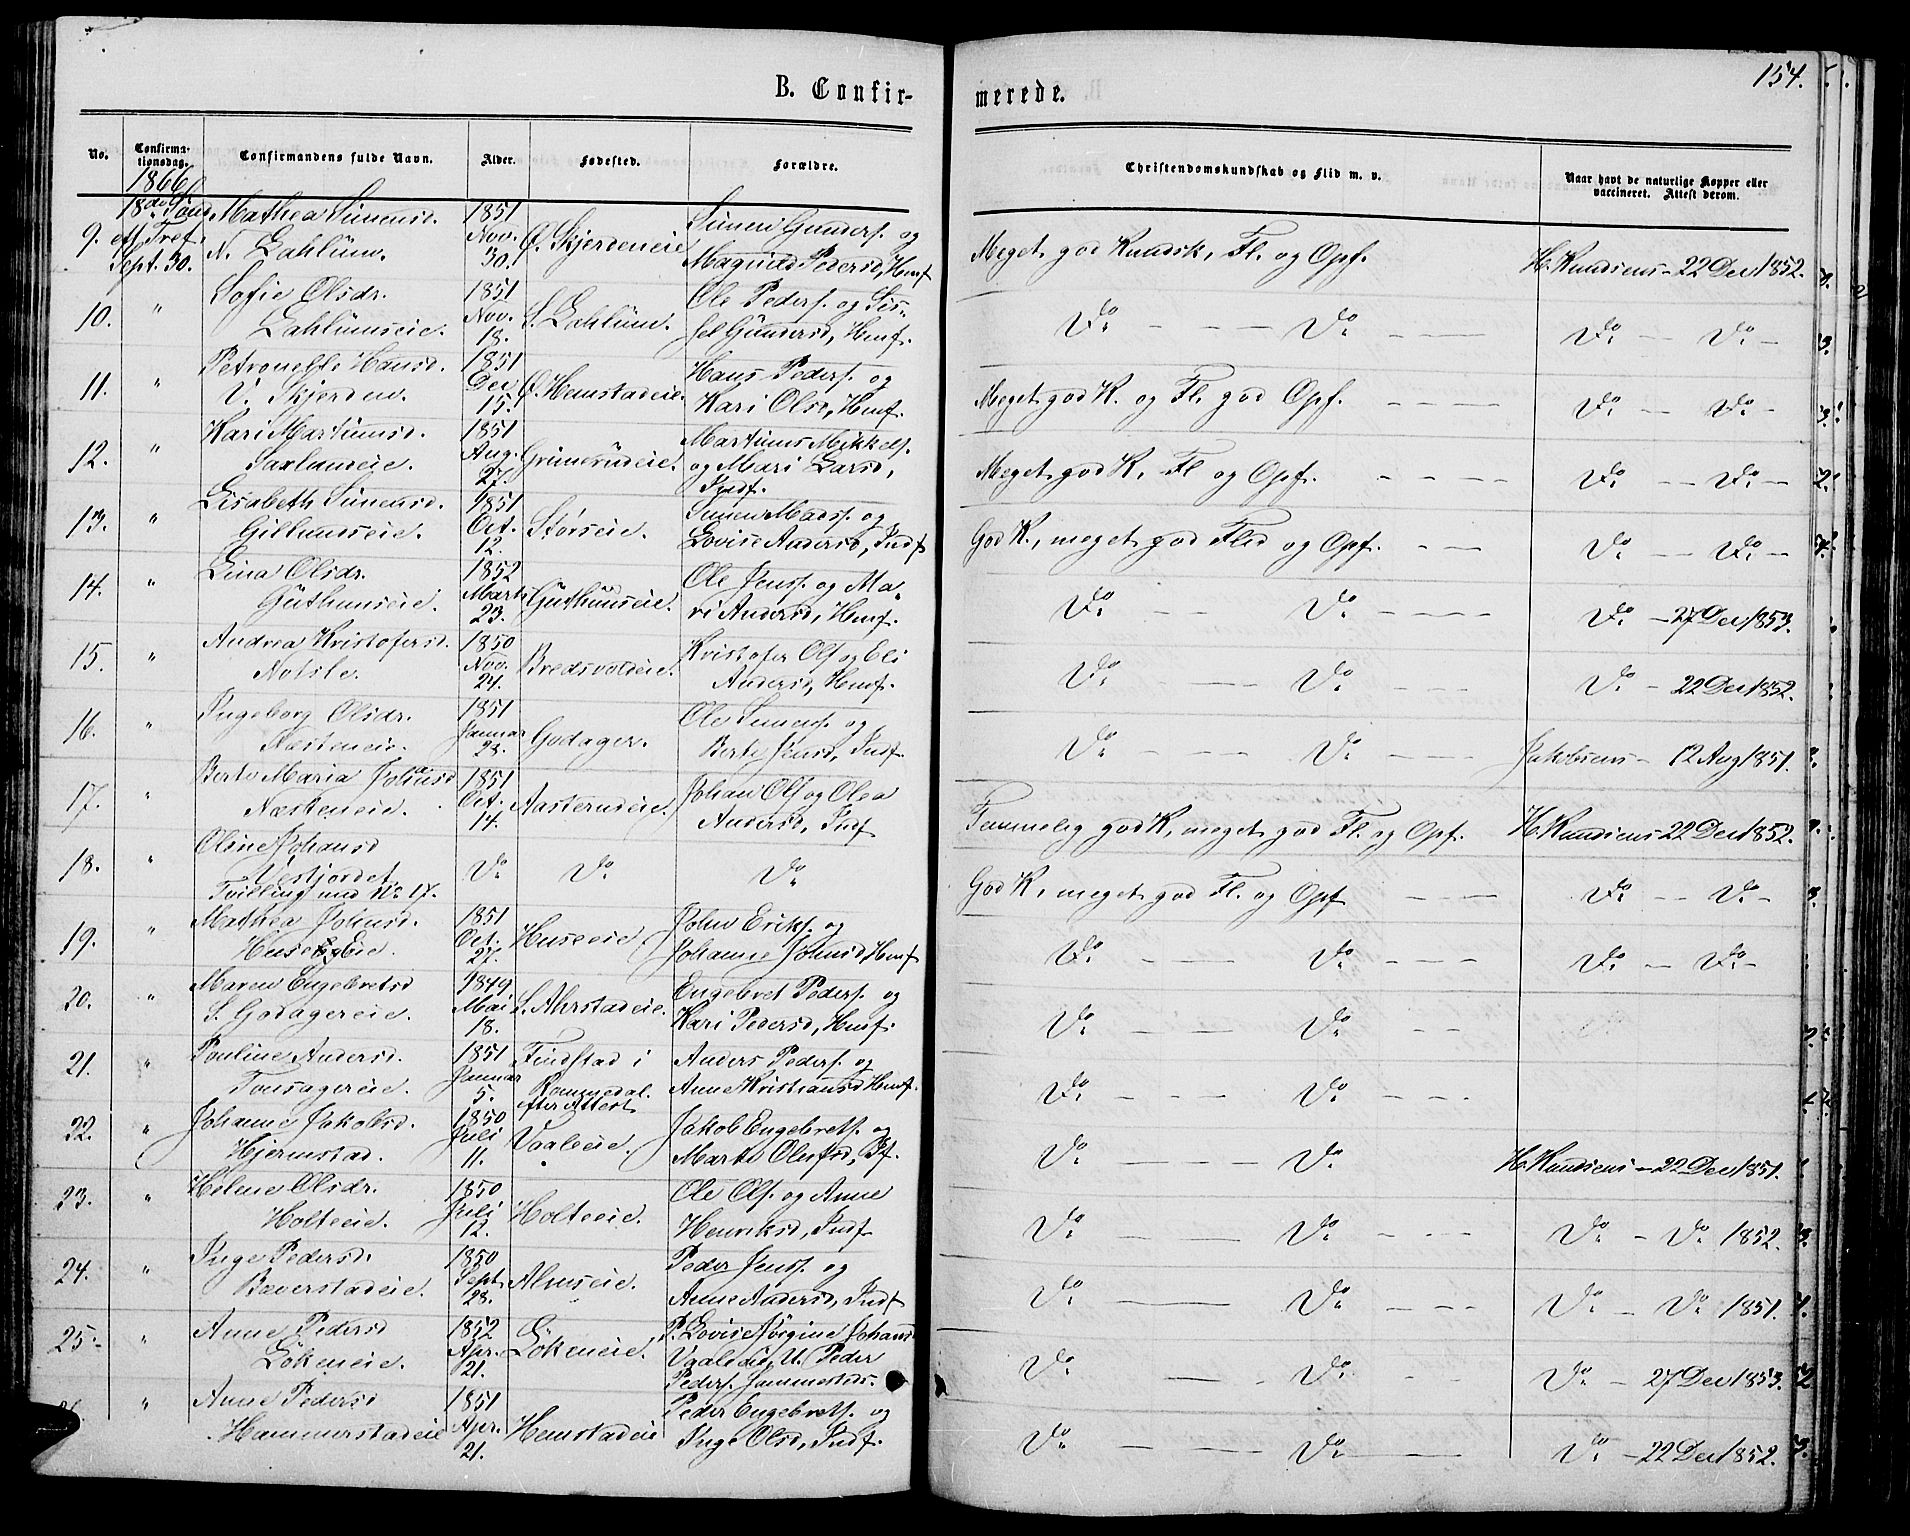 154.
B. Confirmerede.
No. Confirmationsdag. Confirmandens fulde Navn. Alder. Fødested. Forældre. Christendomskundskab og Flid m. v. Naar havt de naturlige Kopper eller vaccineret. Attest derom.
1866
9. 18de Sønd. ef. Tref. Sept. 30. Mathea Simensd. N. Lahlum. 1851 Nov. 30. Ø. Skjerdeneie Simen Gunders. og Magnild Pedersd, Hmf. Meget god Kundsk, Fl. og Opf. H. Knudsens - 22 Dec 1852.
10. " Sofie Olsdr. Lahlumseie. 1851 Nov. 18. S. Lahlum. Ole Peders. og Sissel Gundersd, Hmf. Do - - - Do - - - Do - - Do -
11. " Petronelle Hansd. V. Skjerden. 1851 Dec 15. Ø. Hemstadeie. Hans Peders. og Kari Olsd, Hmf. Meget god K. og Fl. god Opf. - - - Do - - Do -
12. " Kari Martinusd. Saxlundeie. 1851 Aug. 27. Grimerudeie. Martinus Mikkels. og Mari Larsd, Indf. Meget god K, Fl og Opf. - - - - Do - - Do -
13. " Lisabeth Simensd. Gillundseie. 1851 Oct. 12. Størseie. Simen Mads. og Lovise Andersd, Indf God K., meget god Flid og Opf. - - Do - - Do -
14. " Lina Olsdr. Guthuuseie. 1852 Marts 23. Guthuuseie. Ole Jens. og Mari Andersd, Hmf. Do - - Do - - - Do - 27 Dec 1853.
15. " Andrea Kristofersd. Notsle. 1850 Nov. 24. Bredsvoldeie. Kristofer Ols. og Eli Andersd, Hmf. Do - - - Do - - - Do - 22 Dec 1852.
16. " Ingeborg Olsdr. Næsteneie. 1851 Januar 23. Godager. Ole Simens. og Berte Jensd, Indf Do - - - Do - - - Jakobsens - 12 Aug 1851.
17. " Berte Maria Johansd Næsteneie. 1851 Oct. 14. Aasterudeie. Johan Ols. og Olea Andersd, Indf Temmelig god K, meget god Fl. og Opf. H. Knudsens 22 Dec 1852.
18. " Oline Johansd Vestjordet Tvilling med No 17. Do Do Do God K, meget god Fl. og Opf - - - Do - - Do -
19. " Mathea Johnsd. Huse Eie. 1851 Oct. 27. Huseeie John Eriks. og Johanne Johnsd, Hmf Do - - - Do - - - Do - - Do -
20. " Maren Engebretsd S. Godagereie. 1849 Mai 18. S. Ahrstadeie. Engebret Peders. og Kari Pedersd, Hmf. Do - - - Do - -
21. " Pauline Andersd. Tonsagereie. 1851 Januar 5. Findstad i Romedal. efter Attest Anders Peders. og Anne Kristiansd Hmf. Do - - - Do - - -
22. " Johanne Jakobsd. Hjermstad. 1850 Juli 11. Vaaleeie. Jakob Engebrets. og Marte Olsd, Bf. Do - - - Do H. Knudsens - 22 Dec 1851.
23. " Helene Olsdr. Holteeie. 1850 Juli 12. Holteeie. Ole Ols. og Anne Henriksd, Indf Do - - Do - - - Do - Do 1852.
24. " Inge Pedersd. Bæverstadeie. 1850 Sept. 28. Almseie. Peder Jens. og Anne Andersd, Indf Do - - Do - - - Do - Do 1851.
25. " Anne Pedersd Løkeneie. 1852 Apr. 21. Løkeneie. P. Lovise Jørgine Johansd Vaaleeie, U. Peder Peders. Do - - Do - - - Do - 27 Dec 1853.
26. " Anne Pedersd Hammerstadeie 1851 Apr. 21. Hemstadeie Peder Engebrets. og Inge Olsd, Indf. Do - - - Do - - Do - 22 Dec 1852.